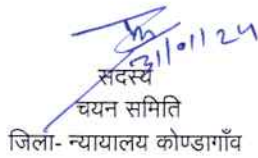 31/01/24
सदस्य
चयन समिति
जिला- न्यायालय कोण्डागाँव